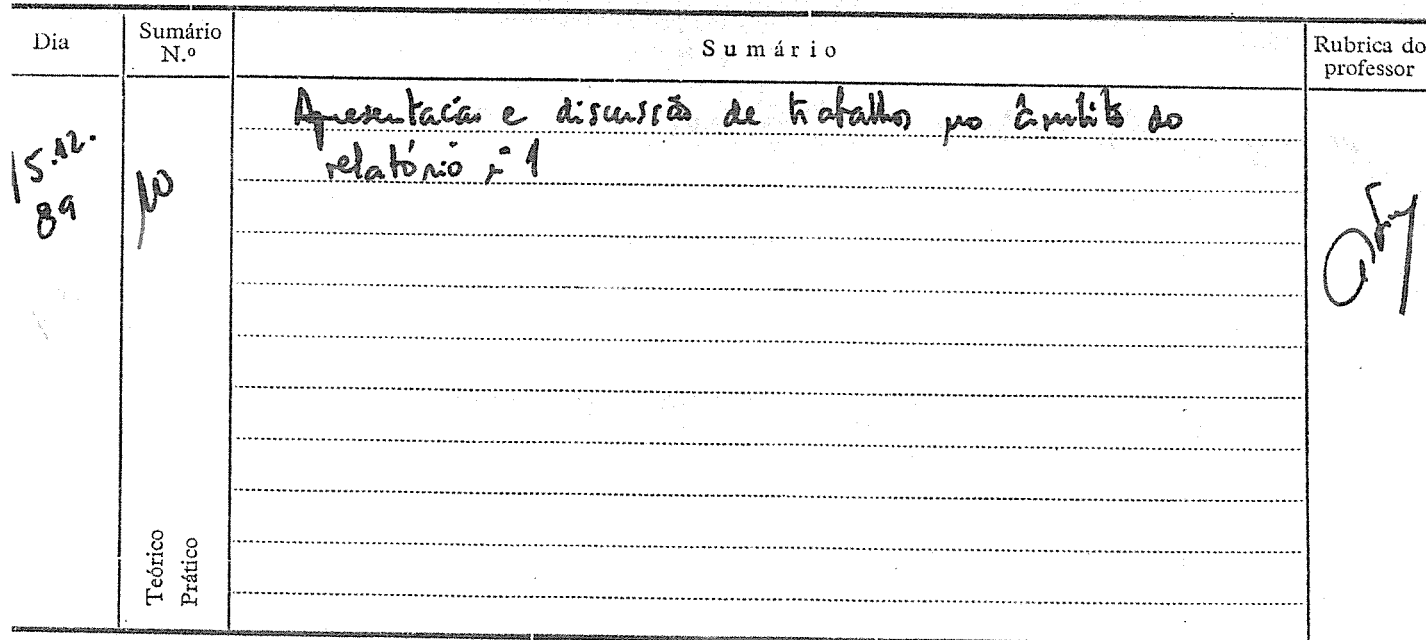 Dia
Sumário N.º
Sumário
Rubrica do professor
15.12.89
10
Apresentação e discussão de trabalhos no âmbito do
relatório nº 1
Teórico
Prático